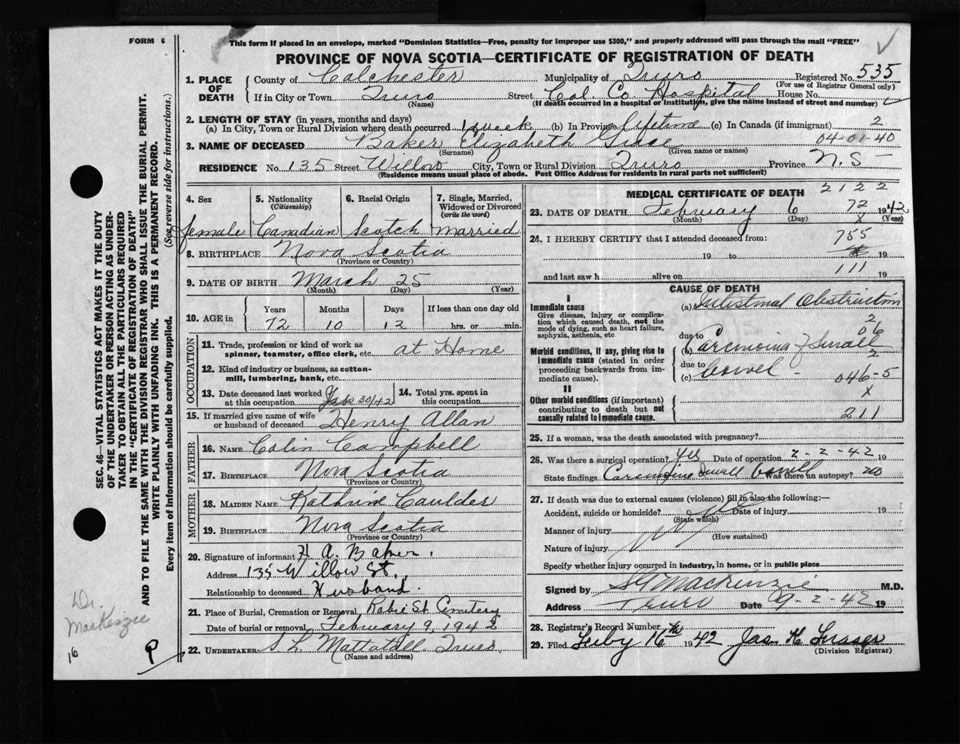 FORM 6
This form if placed in an envelope, marked "Dominion Statistics—Free, penalty for improper use $300," and properly addressed will pass through the mail "FREE"
PROVINCE OF NOVA SCOTIA—CERTIFICATE OF REGISTRATION OF DEATH
1. PLACE OF DEATH
County of Colchester Municipality of Truro Registered No. 535
(For use of Registrar General only)
If in City or Town Truro Street Col. Co. Hospital House No.
(Name) (If death occurred in a hospital or institution, give the name instead of street and number)
2. LENGTH OF STAY (in years, months and days)
(a) In City, Town or Rural Division where death occurred 1 week (b) In Province Lifetime (c) In Canada (if immigrant) 2
04-01-40
3. NAME OF DECEASED Baker Elizabeth
(Surname) (Given name or names)
RESIDENCE No. 135 Street Willow City, Town or Rural Division Truro Province N.S
(Residence means usual place of abode. Post Office Address for residents in rural parts not sufficient)
4. Sex 5. Nationality (Citizenship) 6. Racial Origin 7. Single, Married, Widowed or Divorced (write the word)
female Canadian Scotch married
8. BIRTHPLACE Nova Scotia
(Province or Country)
9. DATE OF BIRTH March 25
(Month) (Day) (Year)
10. AGE in Years Months Days If less than one day old
72 10 12 hrs. or min.
OCCUPATION
11. Trade, profession or kind of work as spinner, teamster, office clerk, etc. at Home
12. Kind of industry or business, as cotton-mill, lumbering, bank, etc.
13. Date deceased last worked at this occupation 30/42 14. Total yrs. spent in this occupation
15. If married give name of wife or husband of deceased Henry Allan
FATHER
16. Name Colin Campbell
17. BIRTHPLACE Nova Scotia
(Province or Country)
MOTHER
18. MAIDEN NAME Caulder
19. BIRTHPLACE Nova Scotia
(Province or Country)
20. Signature of informant H. A. Baker.
Address 135 Willow St.
Relationship to deceased Husband.
21. Place of Burial, Cremation or Removal Robie St. Cemetery
Date of burial or removal February 9, 1942
22. UNDERTAKER Truro.
(Name and address)
MEDICAL CERTIFICATE OF DEATH 2122
23. DATE OF DEATH February 6 72 1942
(Month) X (Day) (Year)
24. I HEREBY CERTIFY that I attended deceased from: 755
19 to 19
and last saw h alive on 111 19
CAUSE OF DEATH
I
Immediate cause
Give disease, injury or complication which caused death, not the mode of dying, such as heart failure, asphyxia, asthenia, etc.
(a) Intestinal Obstruction
2
06
due to
(b) Carcinoma of Small
2
Morbid conditions, if any, giving rise to immediate cause (stated in order proceeding backwards from immediate cause).
due to
(c) bowel - 046-5
X
II
Other morbid conditions (if important) contributing to death but not causally related to immediate cause.
211
25. If a woman, was the death associated with pregnancy?
26. Was there a surgical operation? yes Date of operation 2-2-42 19
State findings Carcinoma small bowel Was there an autopsy? no
27. If death was due to external causes (violence) fill in also the following:—
Accident, suicide or homicide? Date of injury 19
(State which)
Manner of injury
(How sustained)
Nature of injury
Specify whether injury occurred in industry, in home, or in public place
Signed by Mackenzie M.D.
Address Truro Date 9-2-42 19
28. Registrar's Record Number
29. Filed Feby 16th 1942 Jas. H. Fraser
(Division Registrar)
SEC. 46—VITAL STATISTICS ACT MAKES IT THE DUTY
OF THE UNDERTAKER OR PERSON ACTING AS UNDERTAKER TO OBTAIN ALL THE PARTICULARS REQUIRED
IN THE "CERTIFICATE OF REGISTRATION OF DEATH"
AND TO FILE THE SAME WITH THE DIVISION REGISTRAR WHO SHALL ISSUE THE BURIAL PERMIT.
WRITE PLAINLY WITH UNFADING INK. THIS IS A PERMANENT RECORD.
Every item of information should be carefully supplied. (See reverse side for instructions.)
Dr.
MacKenzie
16